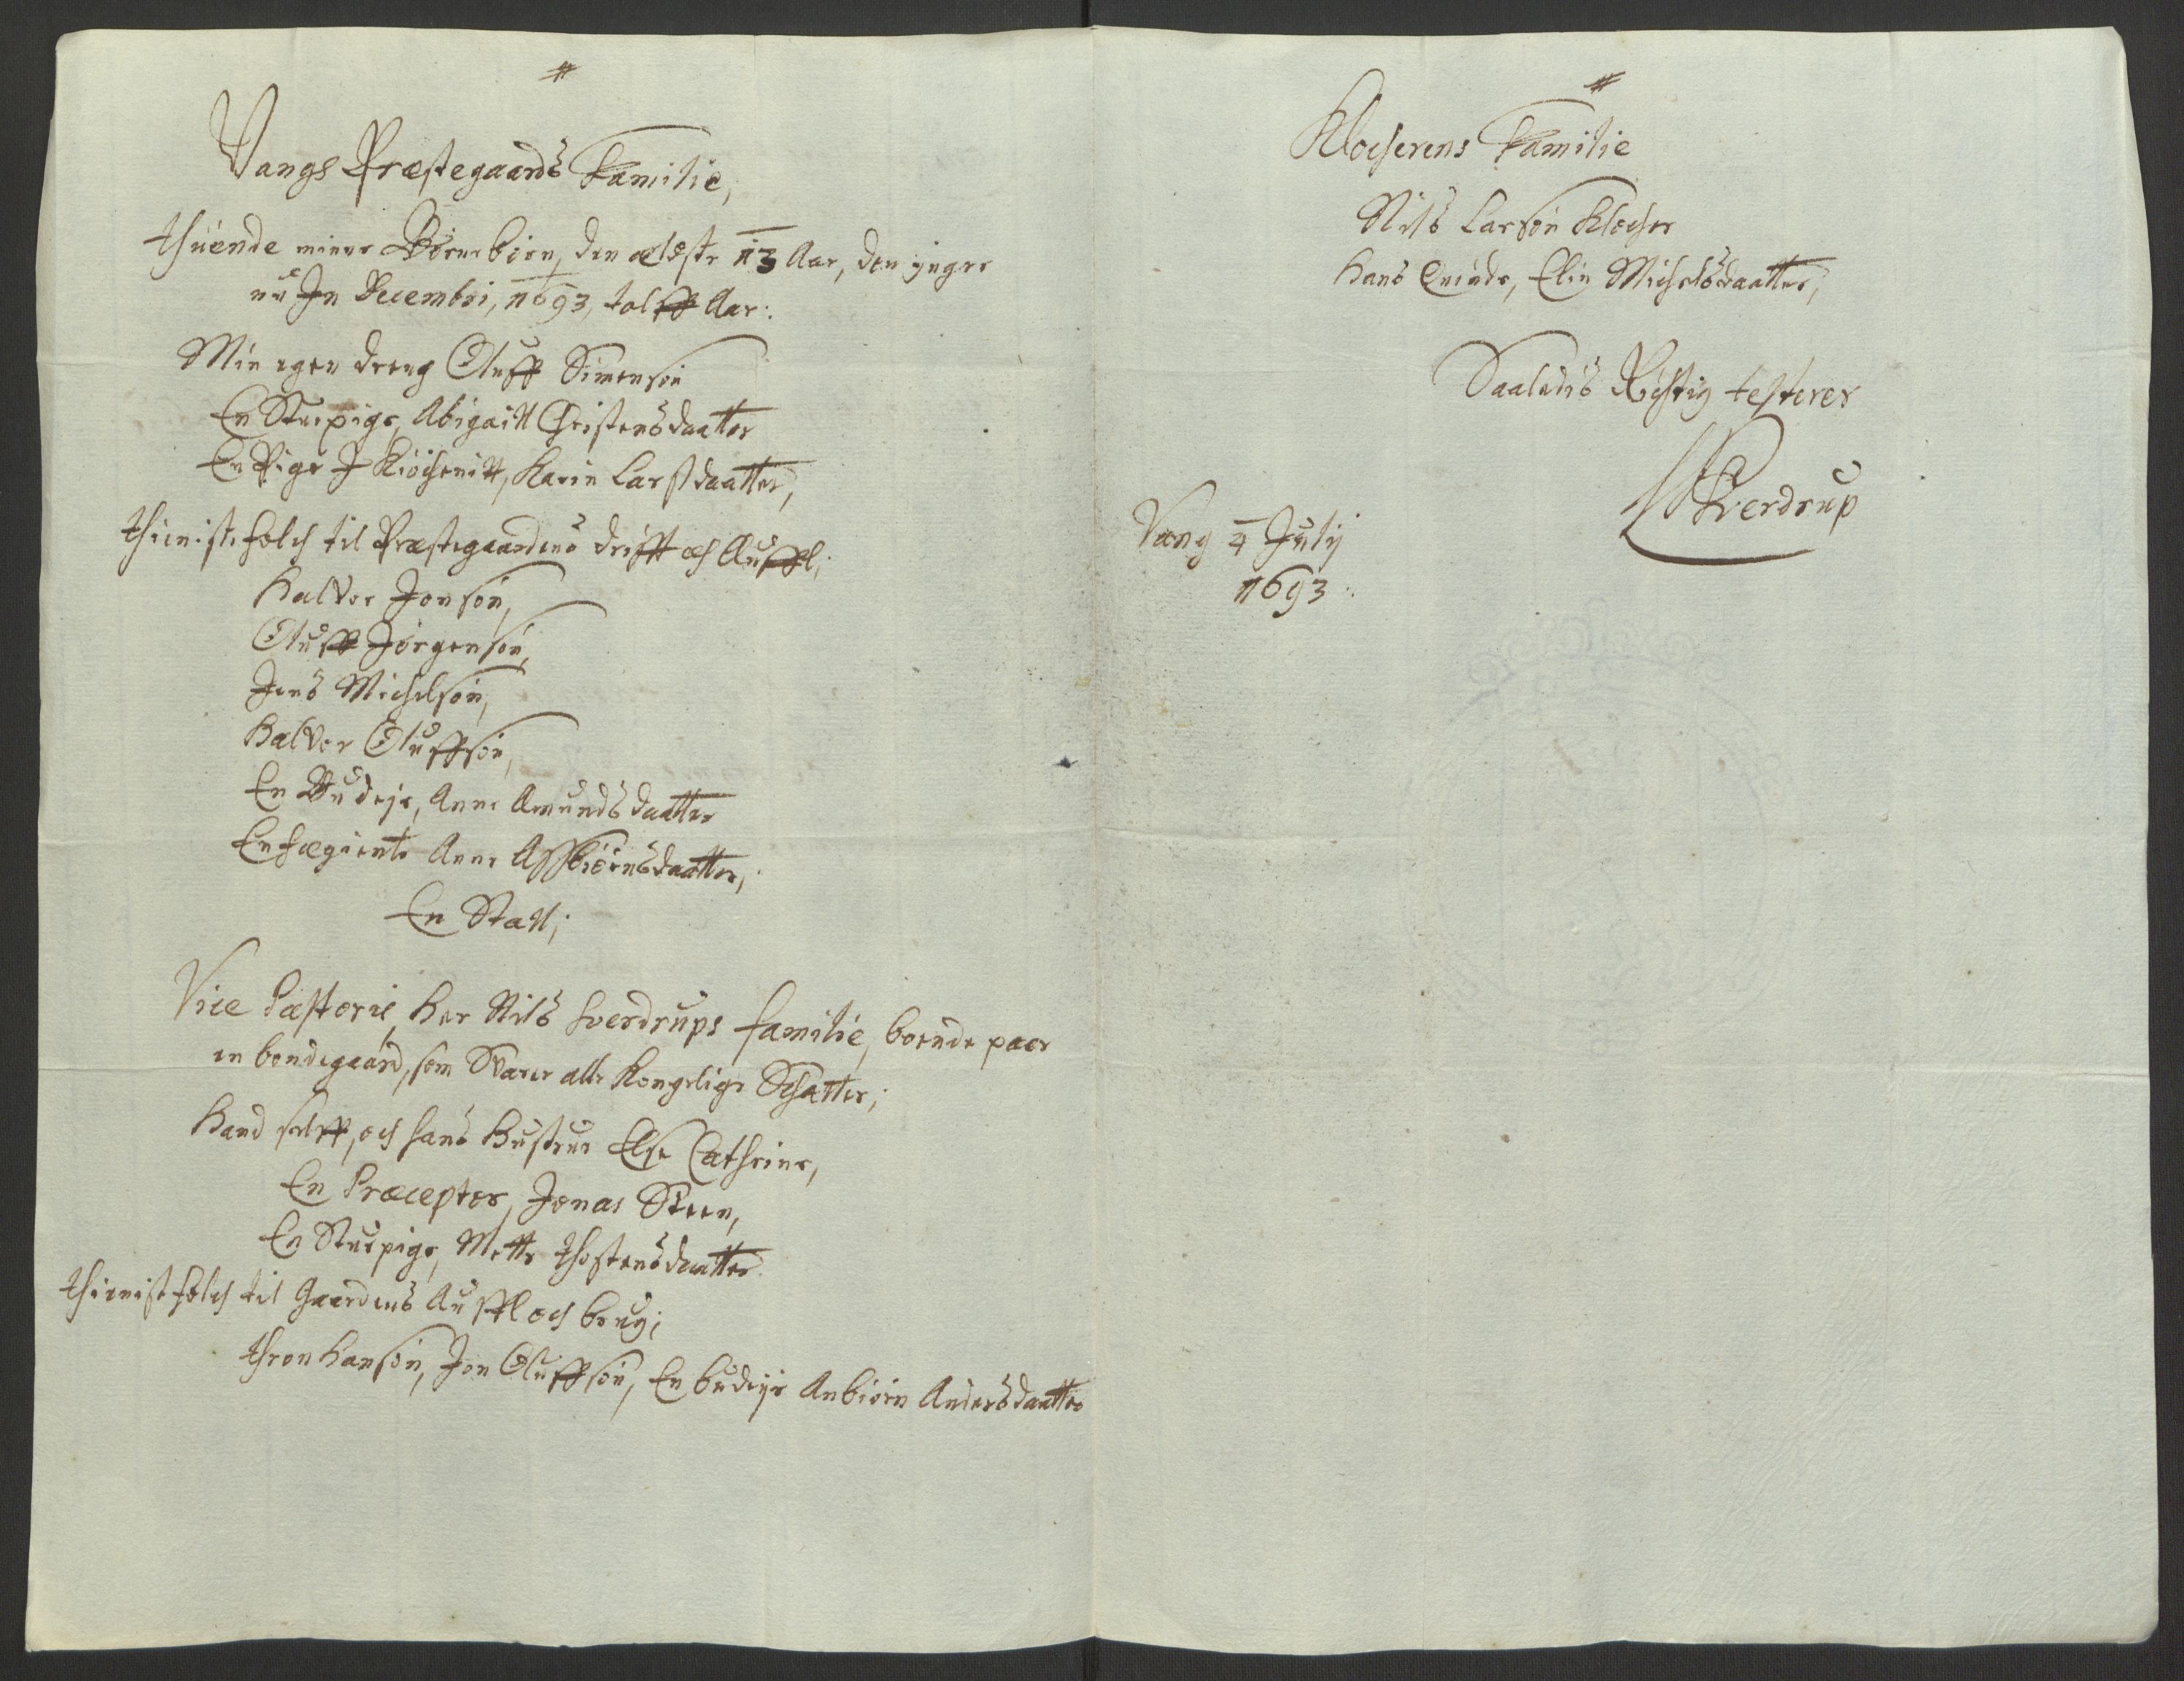 #
Vangs Præstegaards Familie,
thuende mine Børnebörn, den ældste 13 Aar, den yngre
nu Jn Decembri, 1693, tolff Aar:
Min egen dreng Oluff Simensön
En Stuepige, Abigaill Christensdaatter
En Pige J Kiöchenitt, Karin Larsdaatter,
thienistefolch til Præstegaardens drifft och Auffl;
Halvor Jonsön,
Oluff Jörgensön,
Jens Michelsön,
Halvor Oluffsön,
En Budeje, Anne Amundsdaatter
En fægiente Anne Assbiörnsdaatter,
En Stall;
Vice Pastoris, Her Nils Sverdrups familie, boende paa
en bondegaard, som Svarer alle Kongelige Schatter;
Hand selff, och hans Hustrue Else Cathrine,
En Præceptor, Jonas Steen,
En Stuepige, Mette thostensdaatter
thienistfolch til Gaardens Auffl och brug;
thron Hansön, Jon Oluffsön, En budeje Anbiörn Andersdaatter
#
Klocherens Familie
Nils Larsön Klocher
Hans Quinde, Elin Michelsdaatter,
Saaledis Richtig testerer
Sverdrup
Vang 4 Julij
1693: